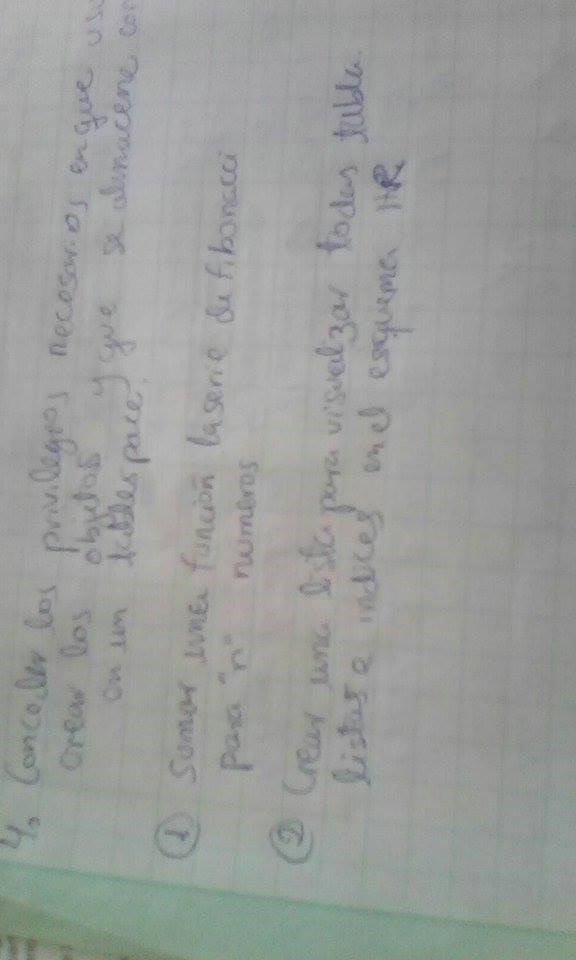 4. Conceder los privilegios necesarios en que
crear los objetos y que se almacene con
en un tablespace.
① Sumar una función la serie de fibonacci
para "n" numeros
② Crear una lista para visualizar todas tabla.
listas e indices en el esquema HR